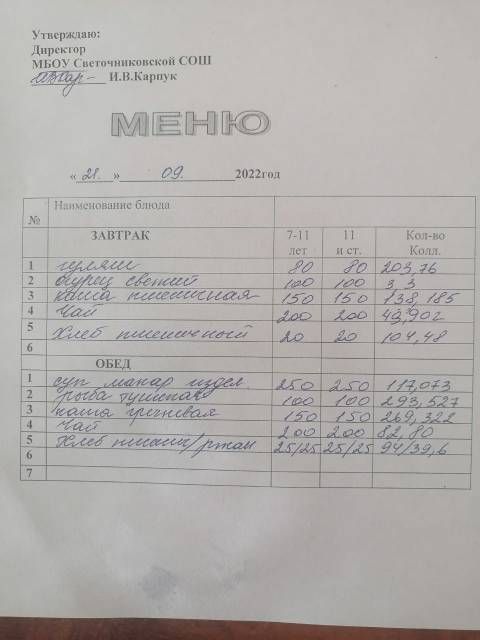 Утверждаю:
Директор
МБОУ Светочниковской СОШ
И.В.Карпук
МЕНЮ
« 21 » 09. 2022год
№ Наименование блюда
ЗАВТРАК 7-11 лет 11 и ст. Кол-во Колл.
1 гуляш 80 80 203,76
2 огурец свежий 100 100 3,3
3 каша пшеничная 150 150 138,185
4 Чай 200 200 49,902
5 Хлеб пшеничный 20 20 104,48
6
ОБЕД
1 суп макар издел. 250 250 117,073
2 рыба тушеная 100 100 293,527
3 каша гречневая 150 150 269,322
4 Чай 200 200 82,80
5 Хлеб пшен/ржан 25/25 25/25 94/39,6
6
7